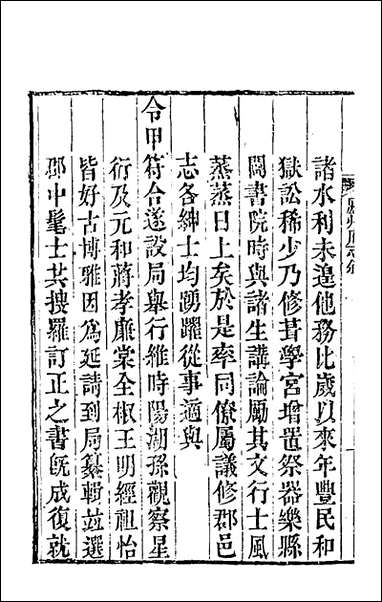 諸水利未遑他務比歲以來年豐民和
獄訟稀少乃修葺學宮增置祭器樂縣
闢書院時與諸生講論勵其文行士風
蒸蒸日上矣於是率同僚屬議修郡邑
志各紳士均踴躍從事適與
令甲符合遂設局舉行維時陽湖孫觀察星
衍及元和蔣孝廉棠全椒王明經祖怡
皆好古博雅因爲延請到局纂輯並選
郡中髦士其搜羅訂正之書既成復就